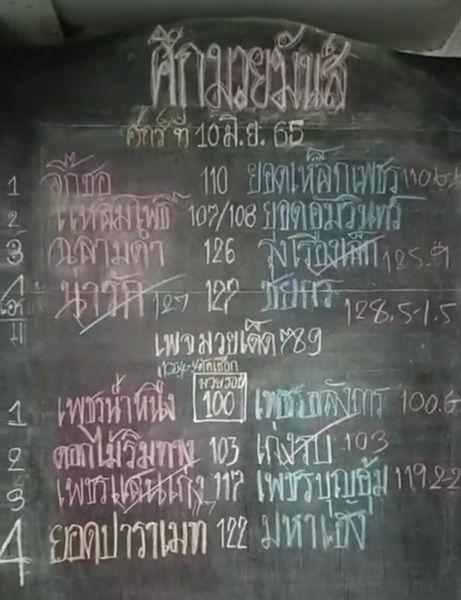 ศึกมวยมันส์
ศุกร์ ที่ 10 มิ.ย. 65
1 จิ๊กซอ 110 ยอดเหล็กเพชร
2 แหลมโพธิ์ 107/108 ยอดอัมรินทร์
3 ฉลามดำ 126 รุ่งเรืองเล็ก 125.9
4 น่ารัก 127 127 ชัยกร 128.5-1.5
เพจมวยเด็ด 789
คัดเลือก
มวยรอบ
1 เพชรน้ำหนึ่ง 100 เพชรอลังการ 100.6
2 ดอกไม้ริมทาง 103 เก่งจบ 103
3 เพชรแดนเก่ง 117 เพชรบุญอุ้ม 119.2-2
4 ยอดปาราเมท 122 มหาเฮง